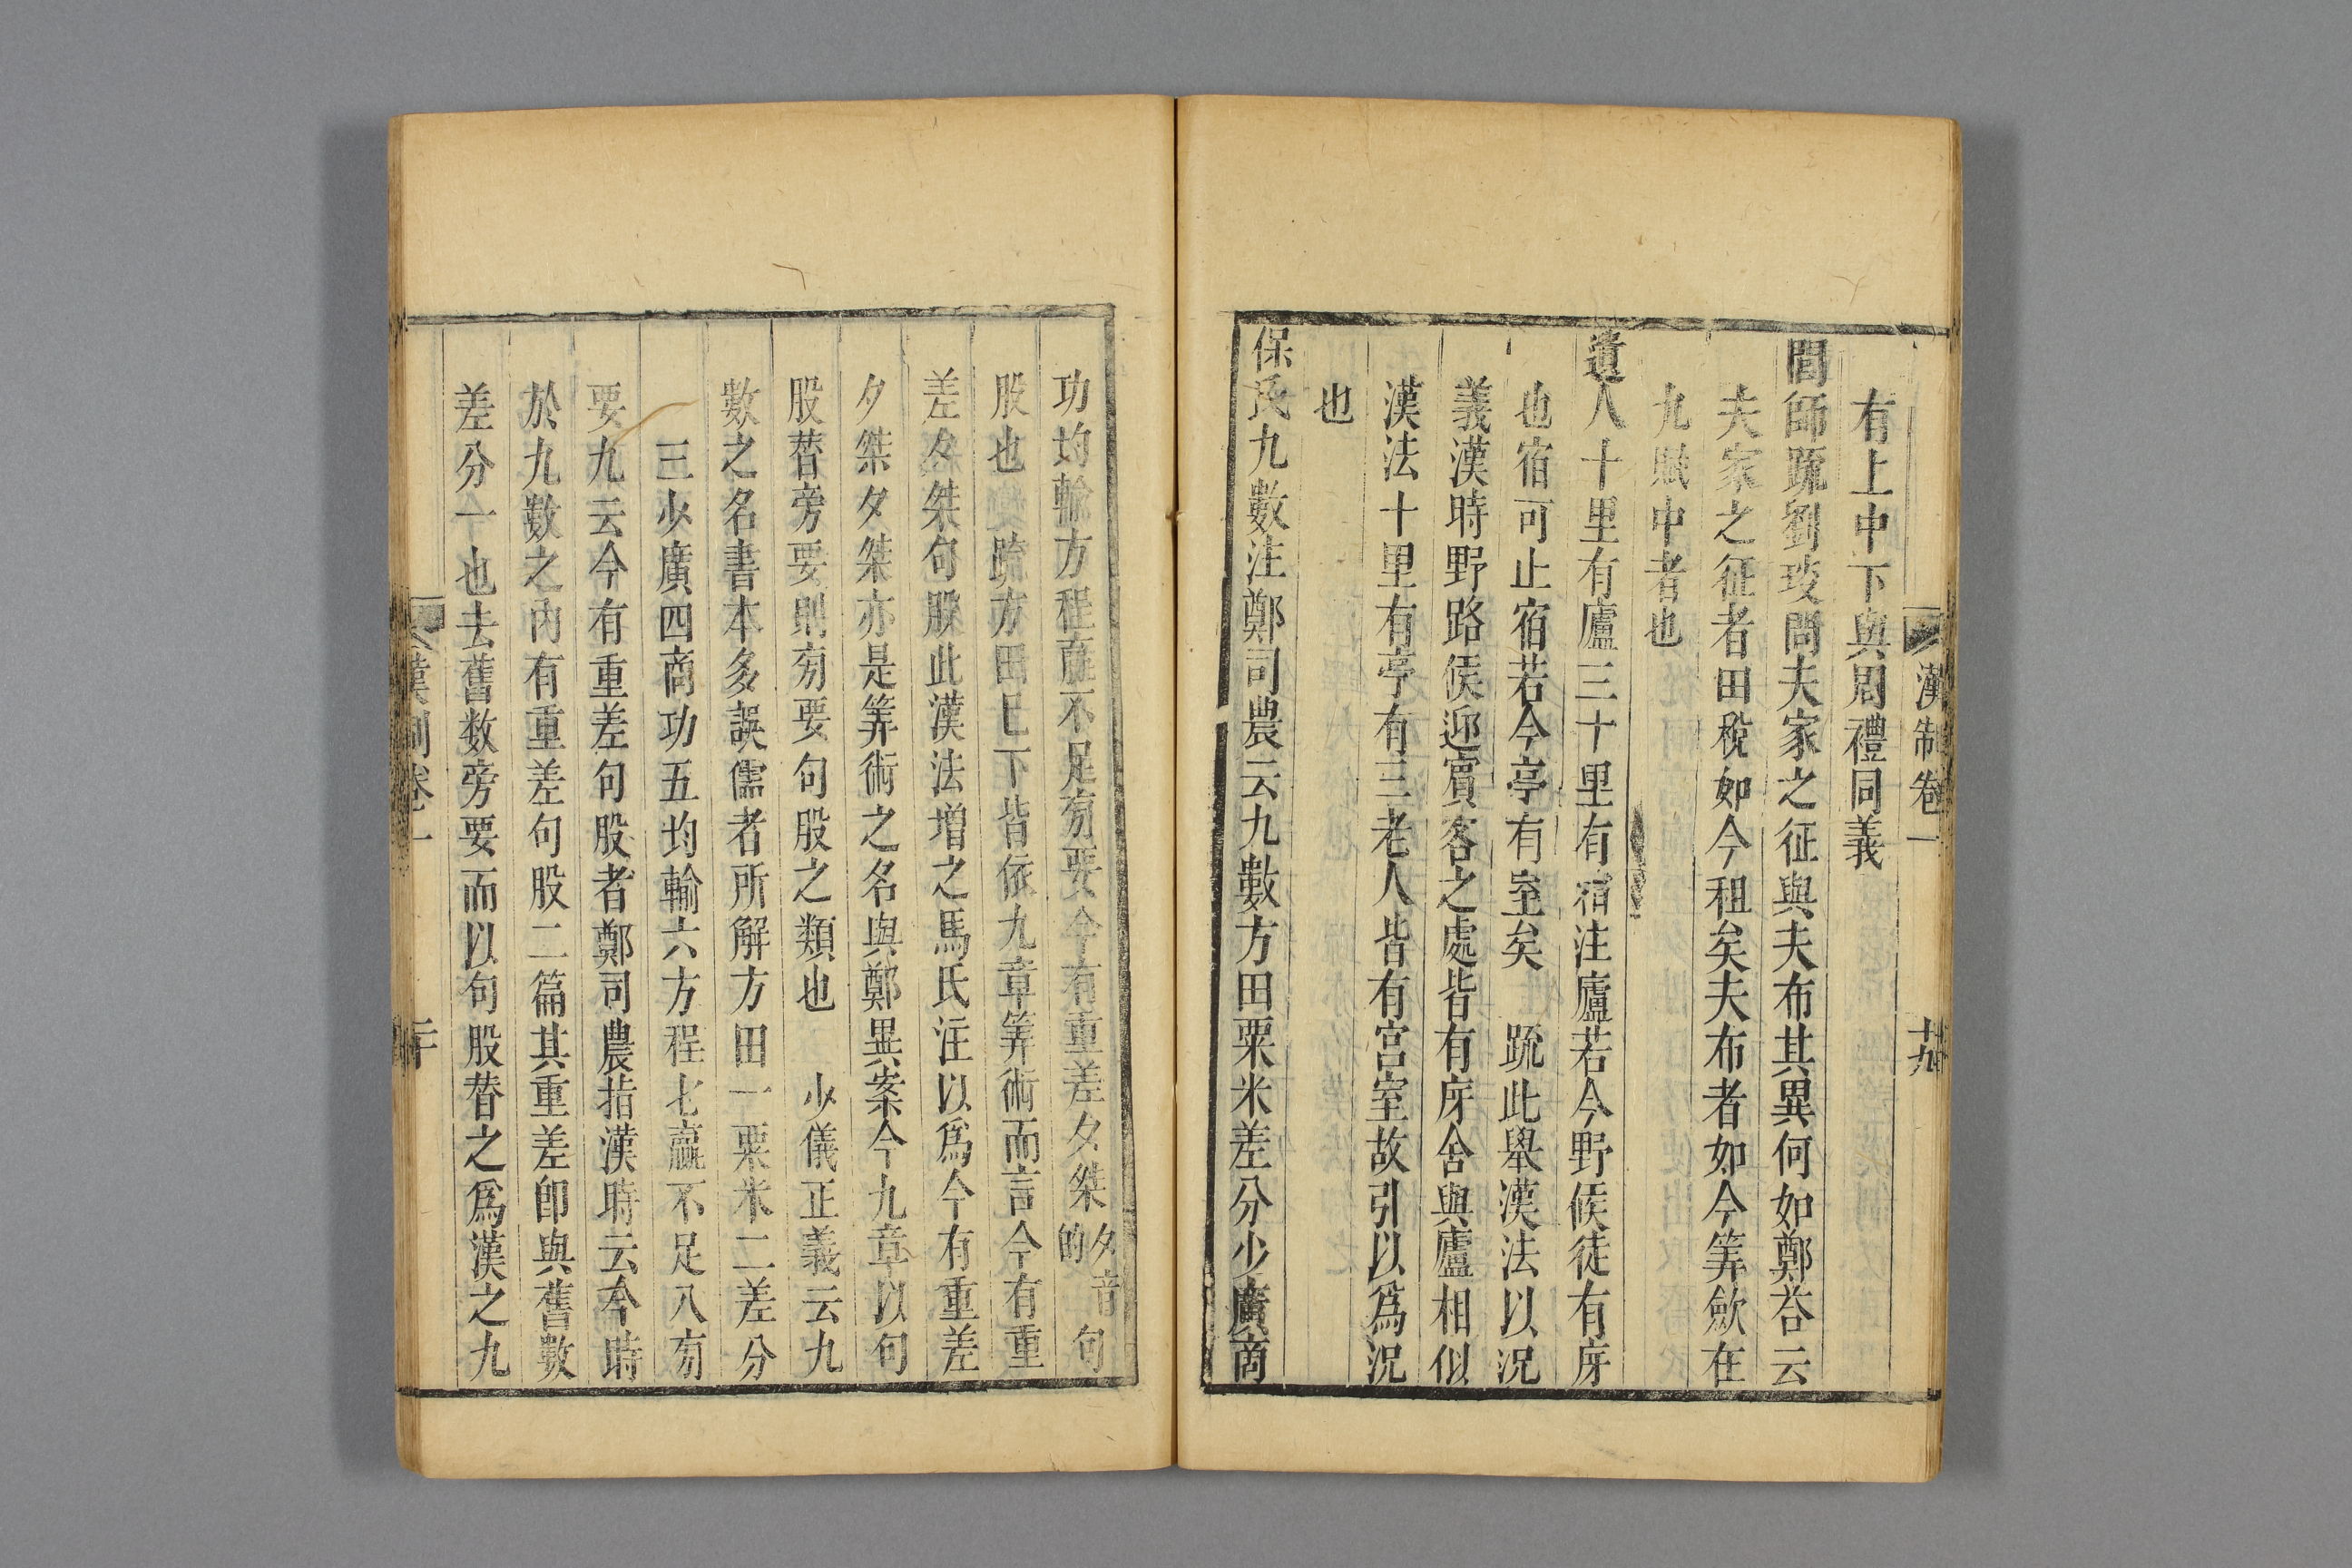 漢制卷一 十九
有上中下與周禮同義
閭師疏劉琰問夫家之征與夫布其異何如鄭荅云
夫家之征者田稅如今租矣夫布者如今筭歛在
九賦中者也
遺人十里有廬三十里有宿注廬若今野候徒有庌
也宿可止宿若今亭有室矣 疏此舉漢法以況
義漢時野路候迎賓客之處皆有庌舍與廬相似
漢法十里有亭亭有三老人皆有宮室故引以爲況
也
保氏九數注鄭司農云九數方田粟米差分少廣商
功均輸方程贏不足旁要今有重差夕桀夕音的句
股也 疏方田已下皆依九章筭術而言今有重
差夕桀句股此漢法增之馬氏注以爲今有重差
夕桀夕桀亦是筭術之名與鄭異案今九章以句
股替旁要則旁要句股之類也 少儀正義云九
數之名書本多誤儒者所解方田一粟米二差分
三少廣四商功五均輸六方程七贏不足八旁
要九云今有重差句股者鄭司農指漢時云今時
於九數之內有重差句股二篇其重差即與舊數
差分一也去舊数旁要而以句股替之爲漢之九
漢制卷一 二十